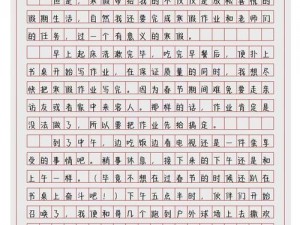 但是，寒假带给我的不仅仅是放松香甜的
假期生活，自然我还要完成寒假作业和老师们
的任务，过一个有意义的寒假。
早上起床洗漱完毕，吃完早餐后，便扑上
书桌开始写作业，在保证质量的同时，我想尽
快把寒假作业写完。因为春节期间难免要走亲
访友或着家中来客人。那样的话，作业肯定是
没法做了，所以要把作业先给搞定。
到了中午，边吃饭边看电视还是一件蛮享
受的事情吧。稍事休息，接下来的下午还是和
上午一样。（毕竟想在过春节的时候还趴在
书桌上奋斗吧！）下午五点半时，伙伴们开始
召唤了，我便和哥几个跑到户外球场上去撒欢